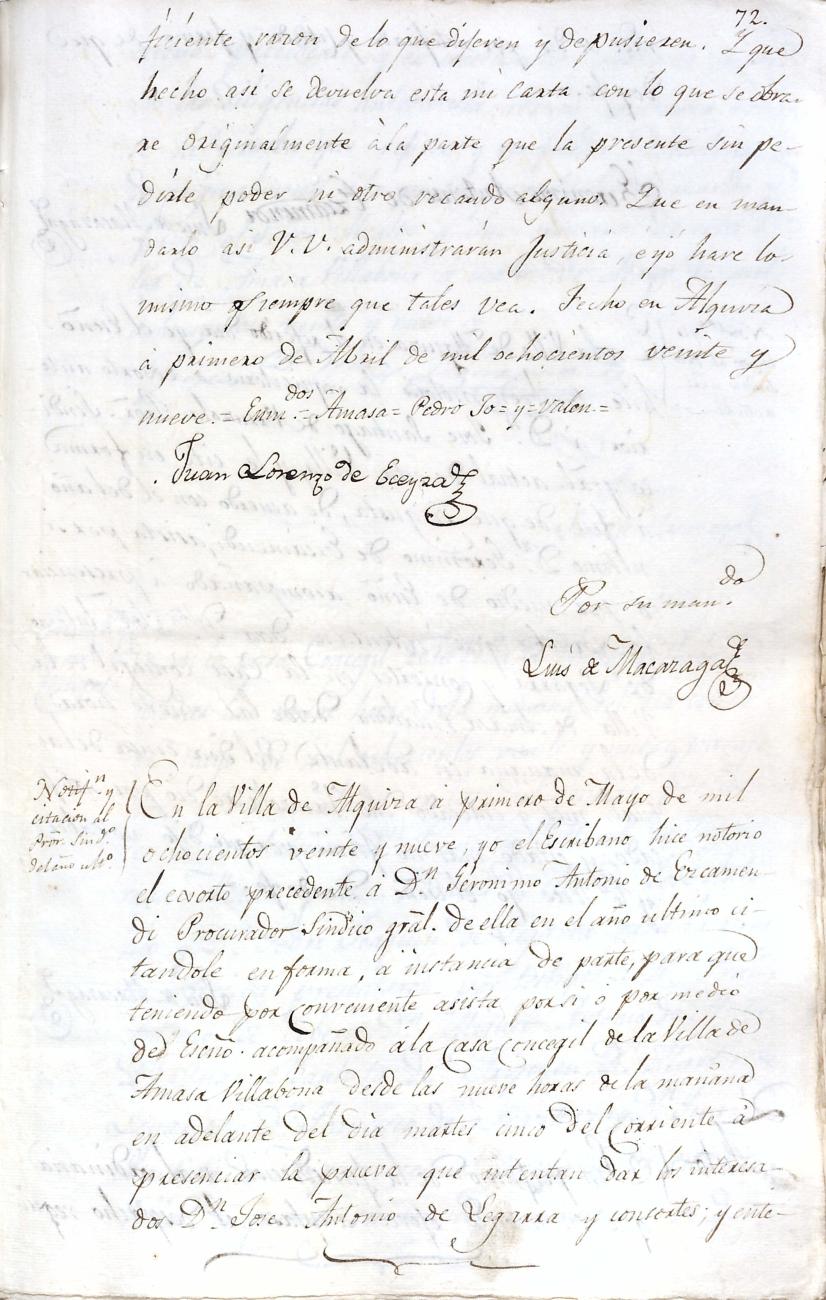 72.
ficiente razon de lo que dijeren y depusieren. Y que
hecho asi se devuelva esta mi carta con lo que se obra-
re originalmente à la parte que la presente sin pe-
dirle poder ni otro recaudo alguno. Que en man-
darlo asi V.V. administrarán Justicia, e yó hare lo
mismo siempre que tales vea. Fecho en Alquiza
á primero de Abril de mil ochocientos veinte y
nueve.= Enm.dos = Amasa = Pedro Jo = y = valen =
Juan Lorenzo de Eceyza
Por su man.do
Luis de Macazaga
Notif.n y
citacion al
Pror. Sind.o
del año ult.o
En la Villa de Alquiza á primero de Mayo de mil
ochocientos veinte y nueve, yo el Escribano hice notorio
el exorto precedente á D.n Geronimo Antonio de Ezcamen-
di Procurador Sindico gral. de ella en el año ultimo ci-
tandole en forma, á instancia de parte, para que
teniendo por conveniente asista por si ó por medio
del Escño. acompañado á la Casa Concegil de la Villa de
Amasa Villabona desde las nueve horas de la mañana
en adelante del dia martes cinco del corriente á
presenciar la prueva que intentan dar los interesa-
dos D.n Jose Antonio de Legarra y consortes; y ente-